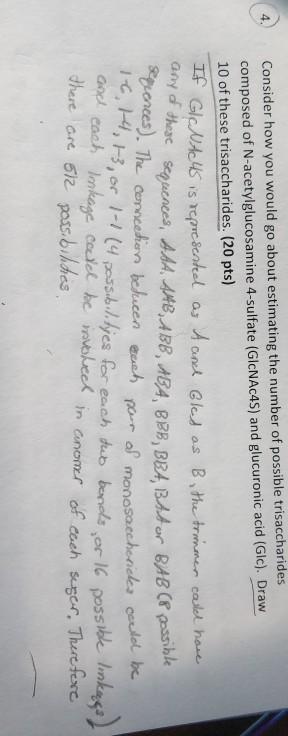 4. Consider how you would go about estimating the number of possible trisaccharides
composed of N-acetylglucosamine 4-sulfate (GlcNAc4S) and glucuronic acid (Glc). Draw
10 of these trisaccharides. (20 pts)
If GlcNAc4S is represented as A and GlcA as B, the trimmer could have
any of these sequences, AAA, AAB, ABB, ABA, BBB, BBA, BAA or BAB (8 possible
sequences). The connection between each pair of monosaccharides could be
1-6, 1-4, 1-3, or 1-1 (4 possibilities for each two bonds, or 16 possible linkages)
and each linkage could be involved in anomer of each sugar. Therefore
there are 512 possibilities.